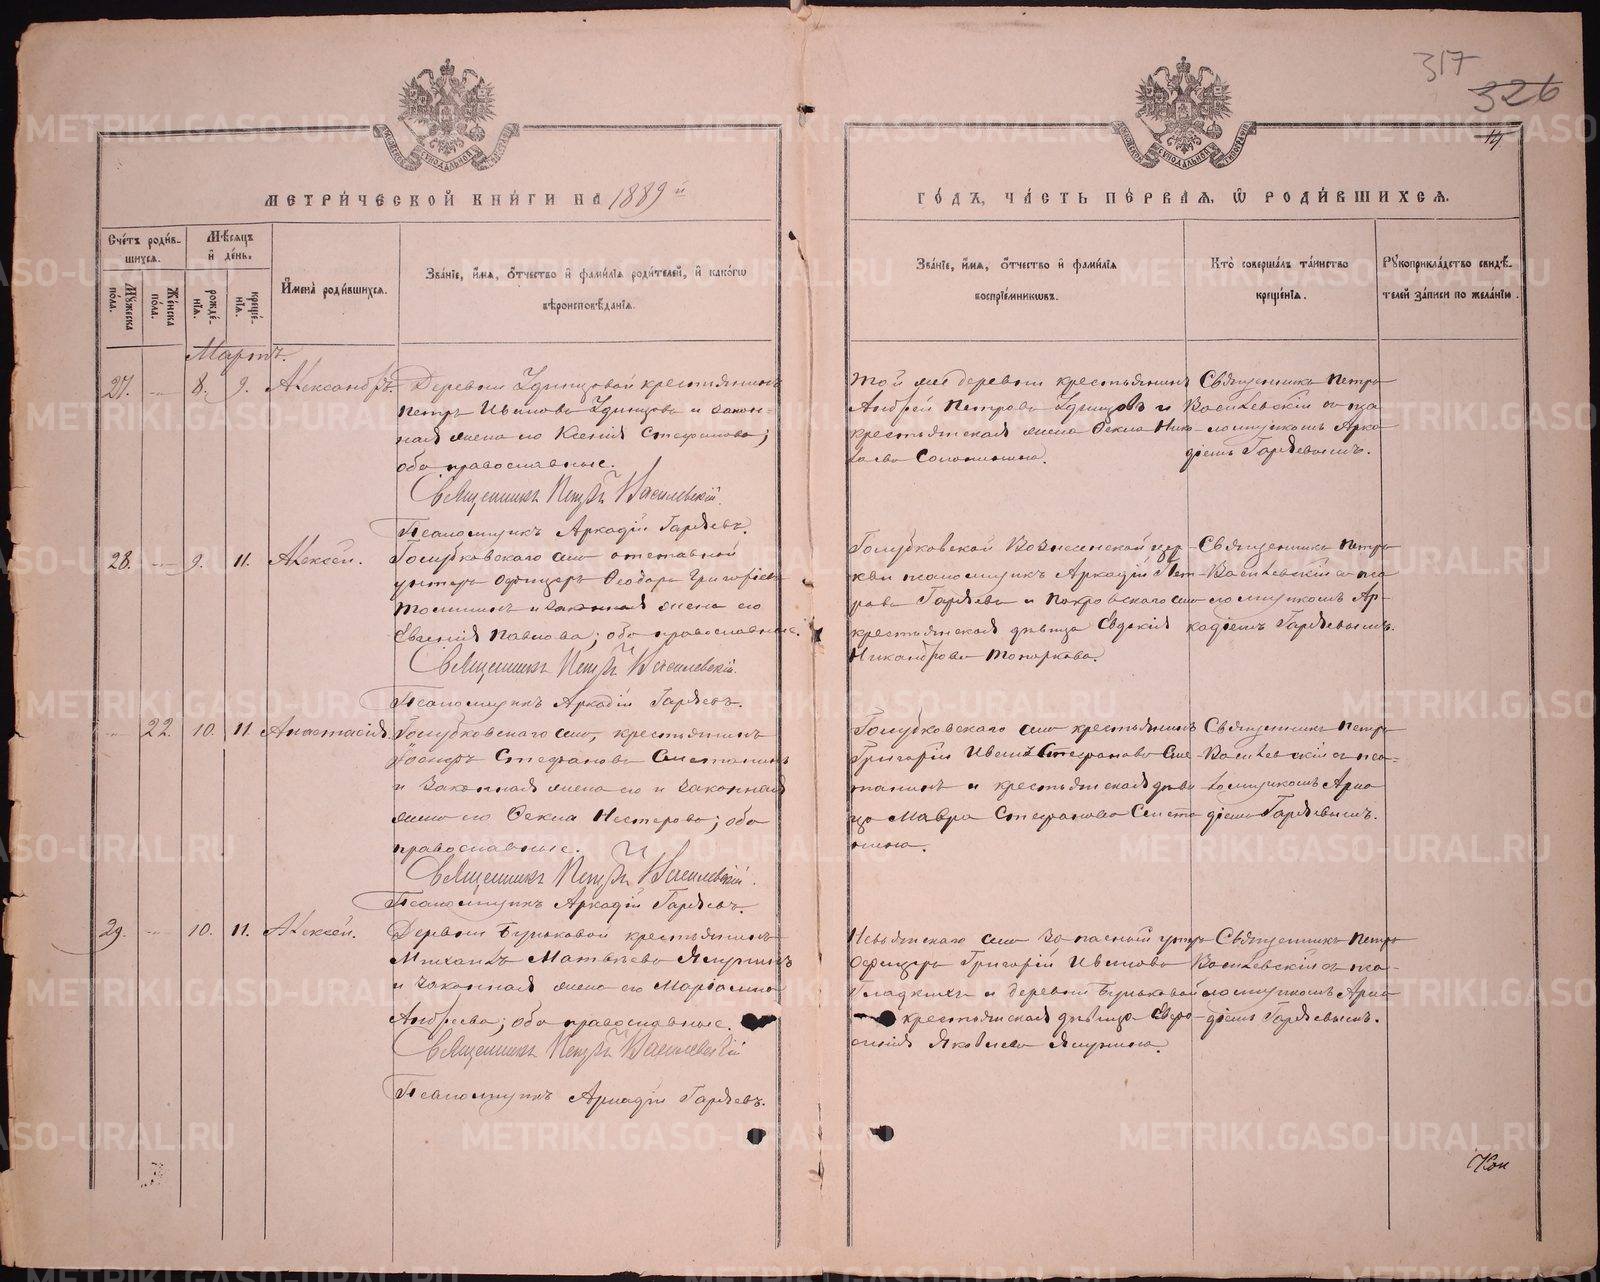 317
326
14
МЕТРИЧЕСКОЙ КНИГИ НА 1889 й
ГОДЪ, ЧАСТЬ ПЕРВАЯ, Ѡ РОДИВШИХСЯ.
Счетъ родившихся.
Мужеска пола.
Женска пола.
Мѣсяцъ и день.
рожденія.
крещенія.
Имена родившихся.
Званіе, имя, отчество и фамилія родителей, и какогѡ
вѣроисповѣданія.
Званіе, имя, отчество и фамилія
воспріемникѡвъ.
Кто совершалъ таинство
крещенія.
Рукоприкладство свидѣ-
телей записи по желанію.
Мартъ.
27. 8. 9. Александръ.
Деревни крестьянинъ
Петръ Ивановъ и закон-
ная жена его Ксенія Стефанова;
оба православные.
Священникъ Петръ Василевскій
Псаломщикъ Аркадій Гаряевъ
Той же деревни крестьянинъ
Андрей Петровъ и
крестьянская жена Ѳекла Нико-
лаева
Священникъ Петръ
Василевскій съ пса
ломщикомъ Арка
діемъ Гаряевымъ.
28. 9. 11. Алексѣй.
Голубковскаго села отставной
унтеръ офицеръ Ѳеодоръ Григорьевъ
и законная жена его
Евгенія Павлова; оба православные.
Священникъ Петръ Василевскій.
Псаломщикъ Аркадій Гаряевъ.
Голубковской Вознесенской цер-
кви псаломщикъ Аркадій Пет-
ровъ Гаряевъ и Покровскаго села
крестьянская дѣвица Евдокія
Никандрова Топоркова.
Священникъ Петръ
Василевскій съ пса
ломщикомъ Ар-
кадіемъ Гаряевымъ.
22. 10. 11. Анастасія.
Голубковскаго села, крестьянинъ
Іосифъ Стефановъ Сметанинъ
и законная жена его и законная
жена его Ѳекла Нестерова; оба
православные.
Священникъ Петръ Василевскій.
Псаломщикъ Аркадій Гаряевъ.
Голубковскаго села крестьянинъ
Григорій Стефановъ Сме-
танинъ и крестьянская дѣви
ца Мавра Стефанова Смета
нина.
Священникъ Петръ
Василевскій съ пса-
ломщикомъ Арка
діемъ Гаряевымъ.
29. 10. 11. Алексѣй.
Деревни Бучковой крестьянинъ
Михаилъ Матвѣевъ Ячунинъ
и законная жена его Маріамна
Андреева; оба православные.
Священникъ Петръ Василевскій
Псаломщикъ Аркадій Гаряевъ.
Невьянскаго села запасный унтеръ
офицеръ Григорій Ивановъ
Гладкихъ и деревни Бучковой
крестьянская дѣвица
Яковлева
Священникъ Петръ
Василевскій съ пса-
ломщикомъ Арка
діемъ Гаряевымъ.
METRIKI.GASO-URAL.RU